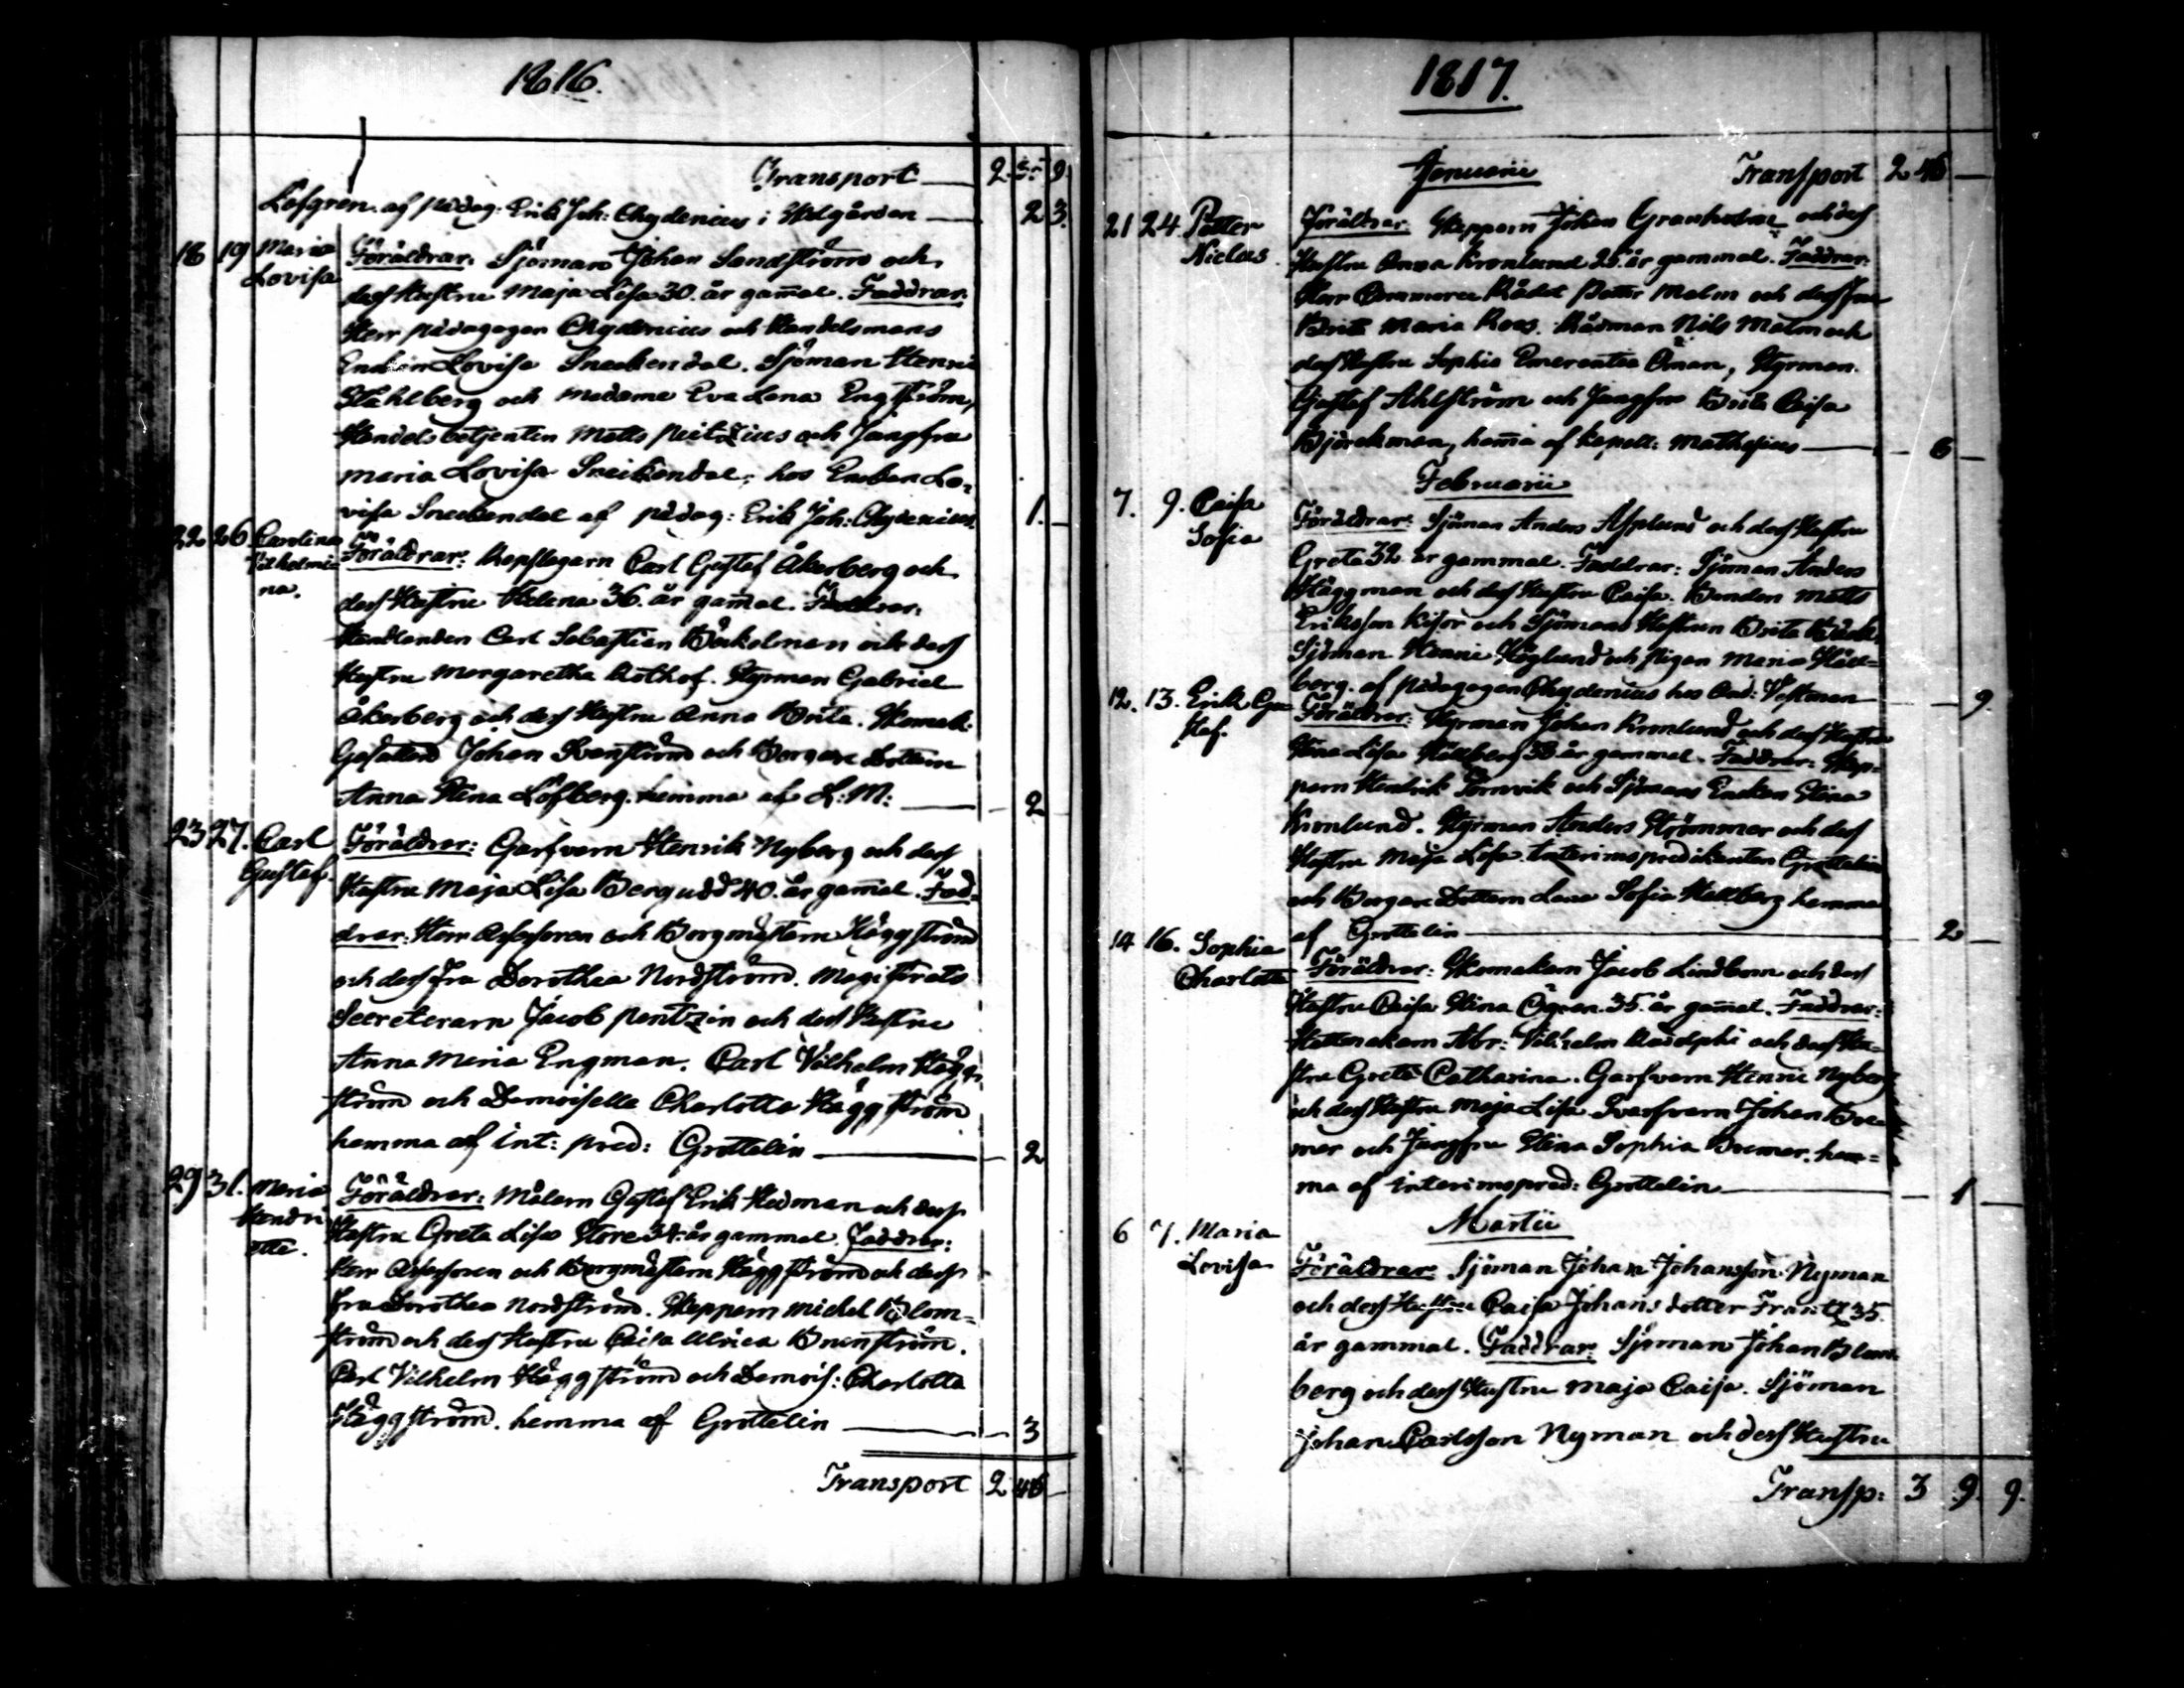 1816.
Transport 2
Löfgren. af pädag: Erik Joh: Chydenius i Wålgården 2 3.
18 19 Maria Lovisa Föräldrar: Sjöman Johan Sandström och
dess Hustru Maja Lisa 30. år gam̄al. Faddrar:
Herr pädagogen Chydenius och Handelsmans
Enkan Lovisa Sneckendal. Sjöman Henric
Ståhlberg och Madame Eva Lena Engström,
Handelsbetjenten Matts peitzius och Jungfru
Maria Lovisa Sneckendal, hos Enkan Lo-
visa Sneckendal af pädag: Erik Joh: Chydenius. 1. —
22 26 Carolina Vilhelmi-
na. Föräldrar: Repslagarn Carl Gustaf Åkerberg och
dess Hustru Helena 36. år gam̄al. Faddrar:
Handlanden Carl Sebastian Bäckman och dess
Hustru Margaretha Rothof. Styrman Gabriel
Åkerberg och dess Hustru Anna Brita. Skomak:
Gesällen Johan Svenström och Borgare Dottern
Anna Stina Löfberg. hemma af L: M: — 2
23 27. Carl Gustaf. Föräldrar: Garfvarn Henrik Nyberg och dess
Hustru Maja Lisa Bergudd 40. år gam̄al. Fad-
drar: Herr Assessoren och Borgmästarn Häggström
och dess fru Dorothea Nordström. Magistrats
Secreterarn Jacob pentzin och dess Hustru
Anna Maria Engman. Carl Vilhelm Hägg-
ström och Demoiselle Charlotta Häggström
hemma af int: pred: Grottelin — 2
29 31. Maria Hendri
etta. Föräldrar: Målarn Gustaf Erik Hedman och dess
Hustru Greta Lisa Store 34. år gammal. Faddrar:
Herr Assessoren och Borgmästarn Häggström och dess
fru Dorothea Nordström. Skeppern Michel Blom-
ström och dess Hustru Caisa Ulrica Brunström.
Carl Vilhelm Häggström och Demois: Charlotta
Häggström. hemma af Grottelin — 3
Transport 2 46 —
1817.
Januarii Transport 2 46 —
21 24 Petter Niclas. Föräldrar: Skeppern Johan Granholm och dess
Hustru Anna Kronlund 25. år gammal. Faddrar:
Herr Commerce Rådet Petter Malm och dess fru
Brita Maria Roos. Rådman Nils Malm och
dess Hustru Sophia Emerentia Öman, Styrman
Gustaf Ahlström och Jungfru Brita Caisa
Björckman, hem̄a af kapell: Mathesius — 6 —
Februarii
7. 9. Caisa Sofia Föräldrar: Sjöman Anders Asplund och dess Hustru
Greta 32 år gammal. Faddrar: Sjöman Anders
Häggman och dess Hustru Caisa. Bonden Matts
Eriksson Kisor och Sjömans Hustrun Brita Bäck.
Sjöman Henric Höglund och pigan Maria Häll-
berg. af pädagogen Chydenius hos Vestman — 9.
12. 13. Erik Gu
staf. Föräldrar: Styrman Johan Kronlund och dess Hustru
Stina Lisa Hällberg 33 år gammal. Faddrar: Skep-
parn Hendrik Törnvik och Sjömans Enckan Stina
Kronlund. Styrman Anders Strömmer och dess
Hustru Maja Lisa. Interimspredikanten Grottelin
och Borgare Dottern Lena Sofia Hällberg hemma
af Grottelin — 2 —
14 16. Sophia Charlotta Föräldrar: Skomakarn Jacob Lindbom och dess
Hustru Caisa Stina Ögren. 35. år gam̄al. Faddrar:
Hattmakarn Abr: Vilhelm Rudolphi och dess Hu-
stru Greta Catharina. Garfvarn Henric Nyberg
och dess Hustru Maja Lisa. Svarfvarn Johan Bre
mer och Jungfru Stina Sophia Bremer. hem-
ma af interimspred: Grottelin — 1 —
Martii
6 7. Maria Lovisa Föräldrar: Sjöman Johan Johansson Nyman
och dess Hustru Caisa Johansdotter Frantz 35.
år gammal. Faddrar: Sjöman Johan Blom-
berg och dess Hustru Maja Caisa. Sjöman
Johan Carlsson Nyman och dess Hustru
Transp: 3 9. 9.